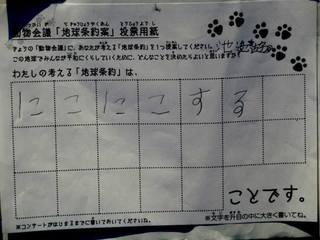 動物会議「地球条約案」投票用紙
きょうの「動物会議」に、あなたが考える「地球条約」を1つ提案してください。
この地球でみんなが平和にくらしていくために、どんなことを決めたらよいと思いますか?
わたしの考える「地球条約」は、
にこにこする
ことです。
※文字を升目の中に大きく書いてね。
※コンサートがはじまるまでに書いておいてくださいね。